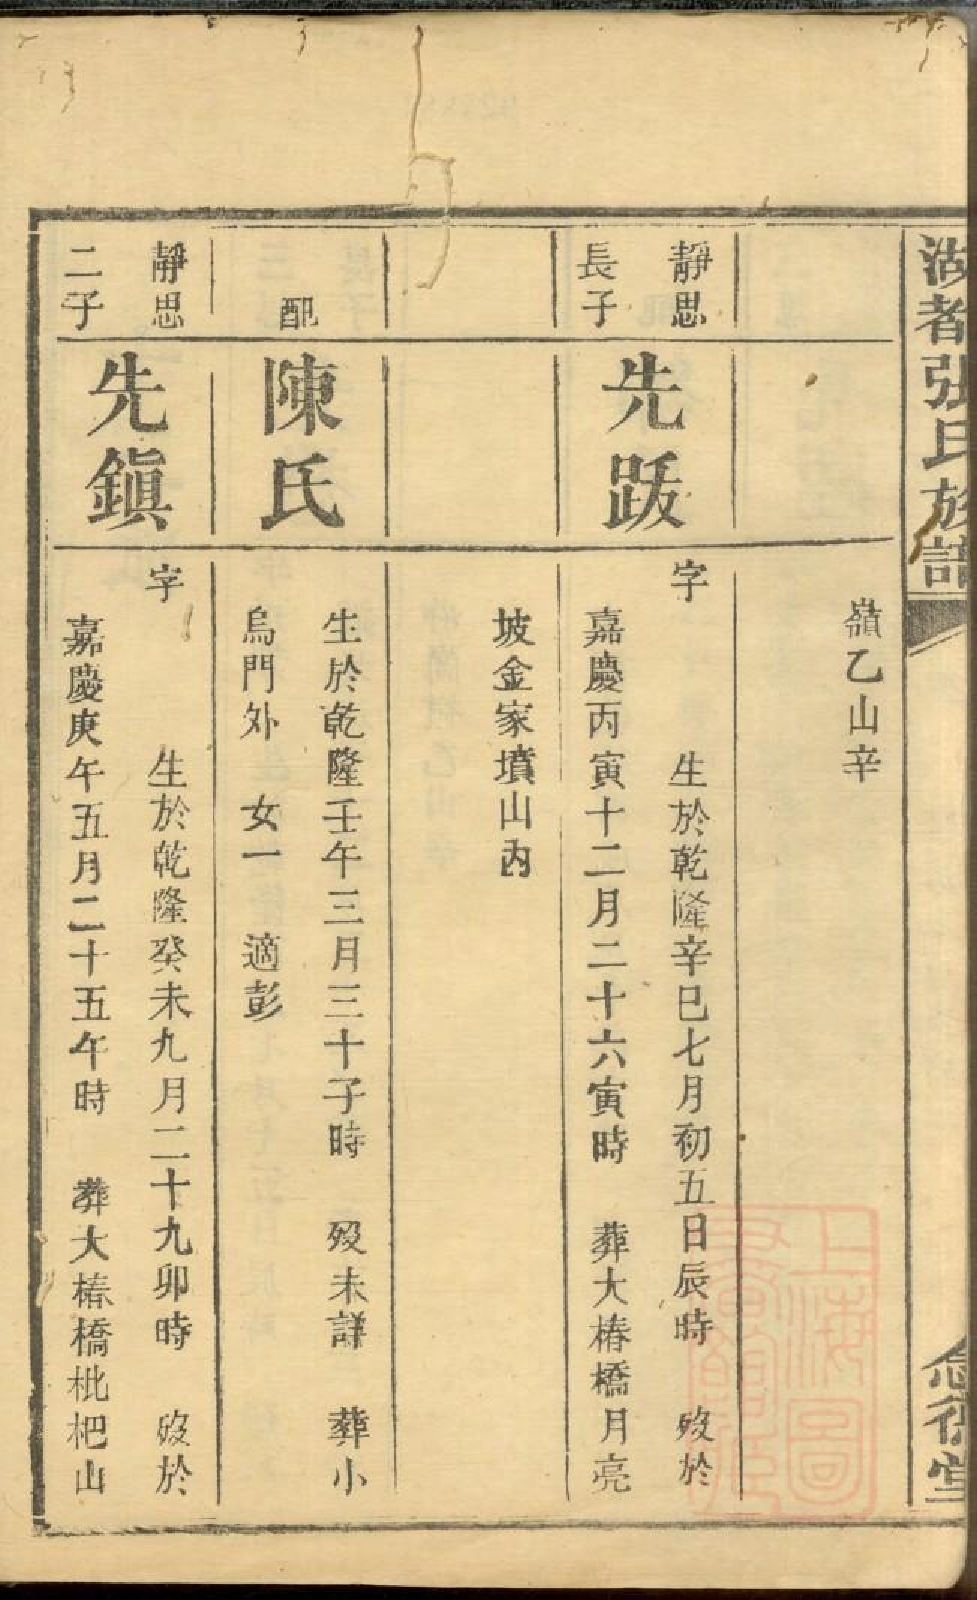 湖者張氏族譜
嶺乙山辛
靜思
長子
先䟦
字 生於乾隆辛巳七月初五日辰時 歿於
嘉慶丙寅十二月二十六寅時 葬大椿橋月亮
坡金家墳山內
配
陳氏
生於乾隆壬午三月三十子時 歿未詳 葬小
烏門外 女一 適彭
靜思
二子
先鎭
字 生於乾隆癸未九月二十九卯時 歿於
嘉慶庚午五月二十五午時 葬大椿橋枇杷山
堂
上海圖